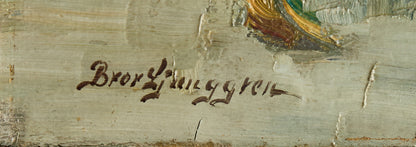 Bror Ljunggren